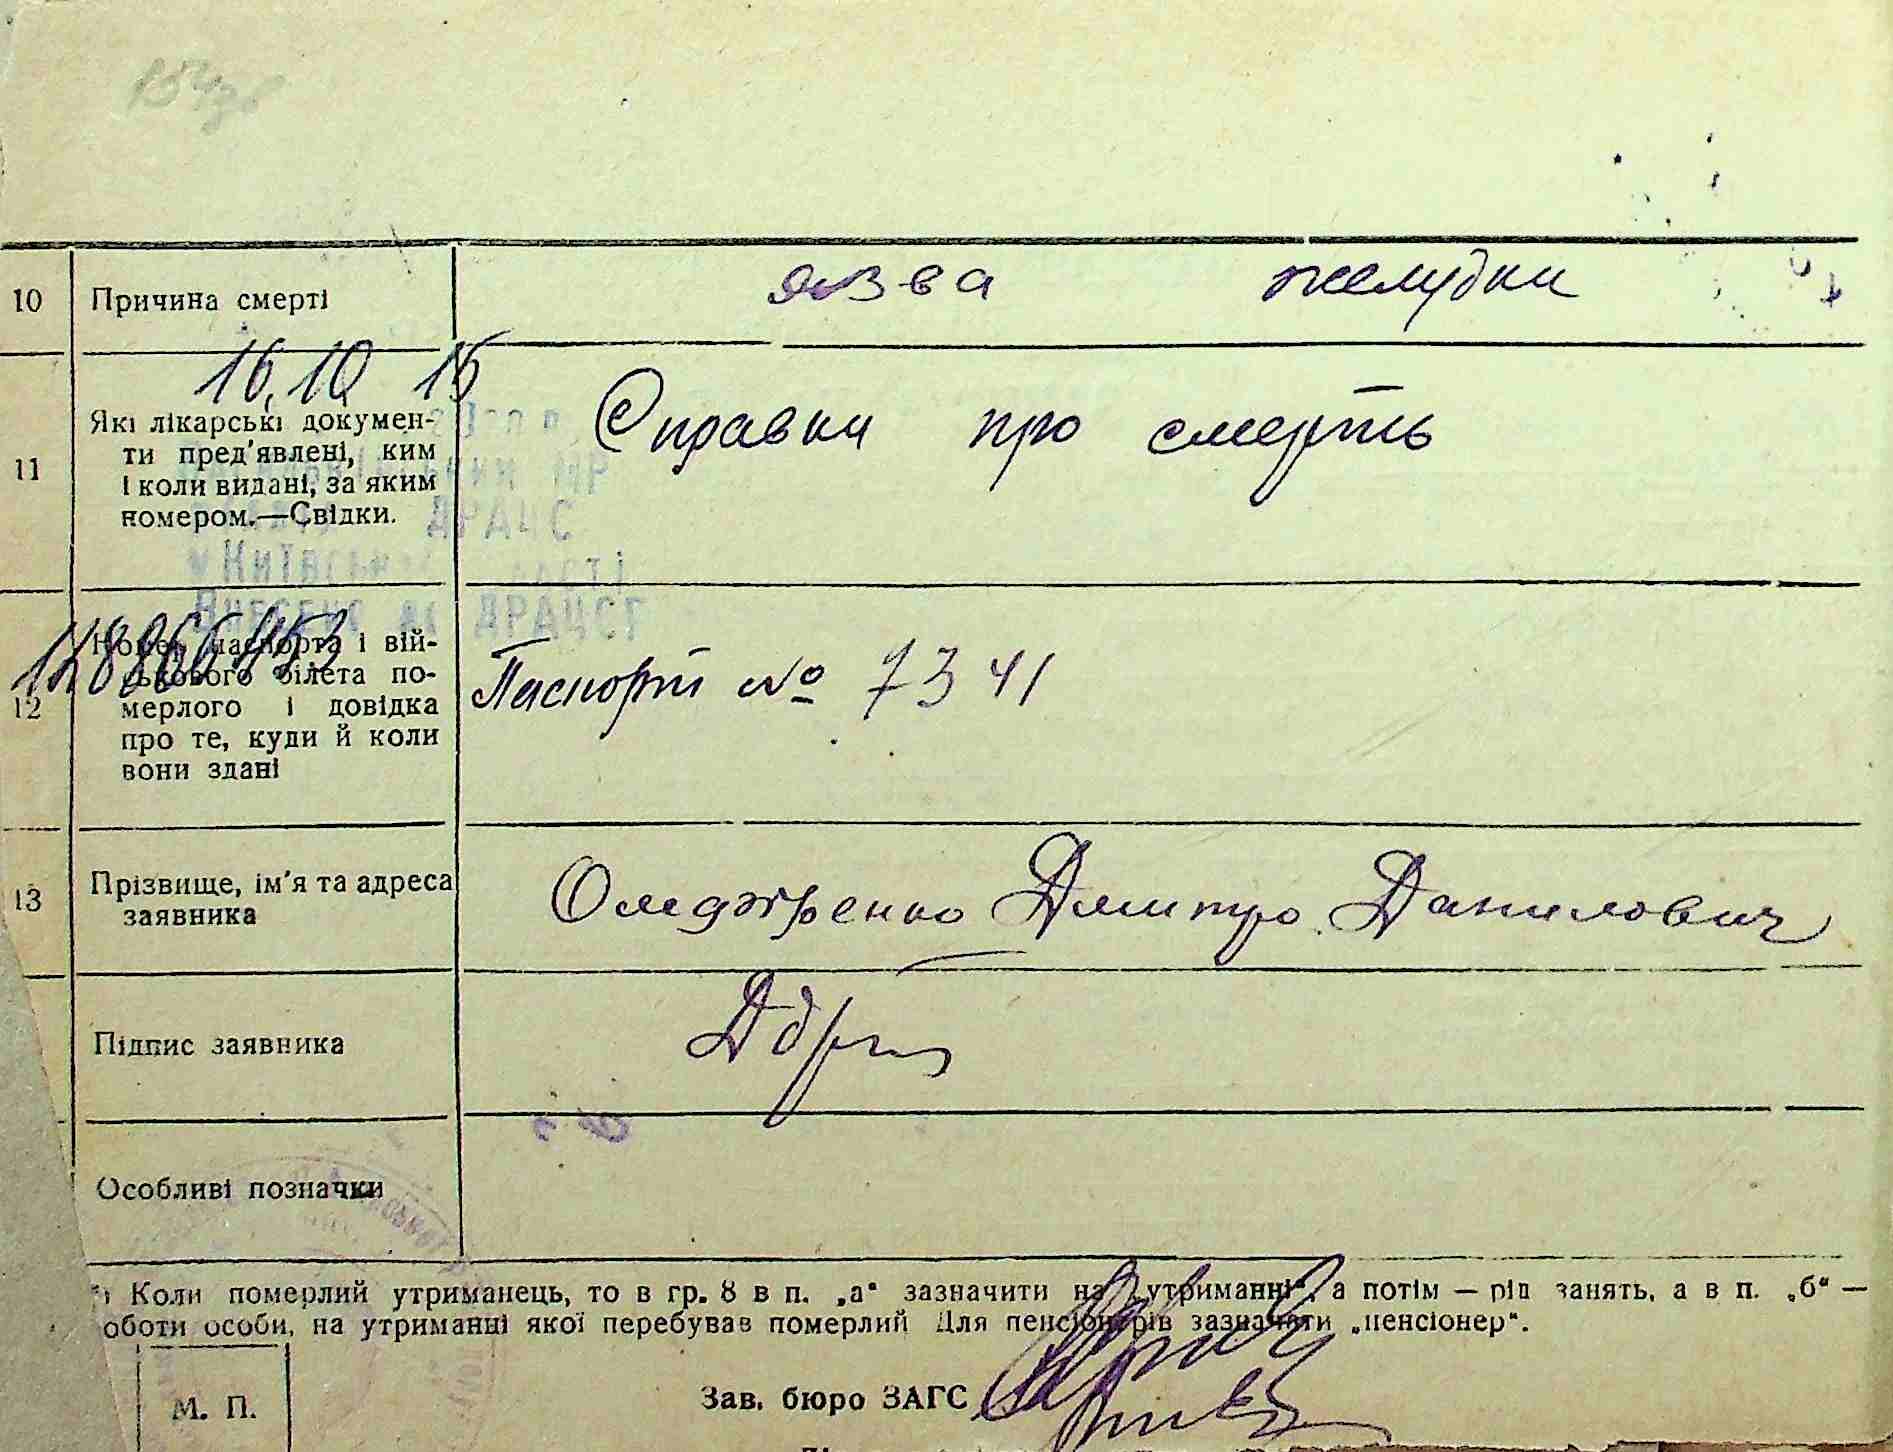 10 Причина смерті язва желудки
16.10 15
11 Які лікарські докумен-
ти пред'явлені, ким
і коли видані, за яким
номером.—Свідки.
Справки про смерть
ДРАЦС
12 Номер паспорта і вій-
ськового білета по-
мерлого і довідка
про те, куди й коли
вони здані
Паспорт № 7341
13 Прізвище, ім'я та адреса
заявника
Дмитро Данилович
Підпис заявника
Особливі позначки
Коли померлий утриманець, то в гр. 8 в п. „а“ зазначити на „утриманні“, а потім — рід занять, а в п. „б“ —
оботи особи, на утриманні якої перебував померлий Для пенсіонерів зазначати „пенсіонер“.
М. П.
Зав. бюро ЗАГС